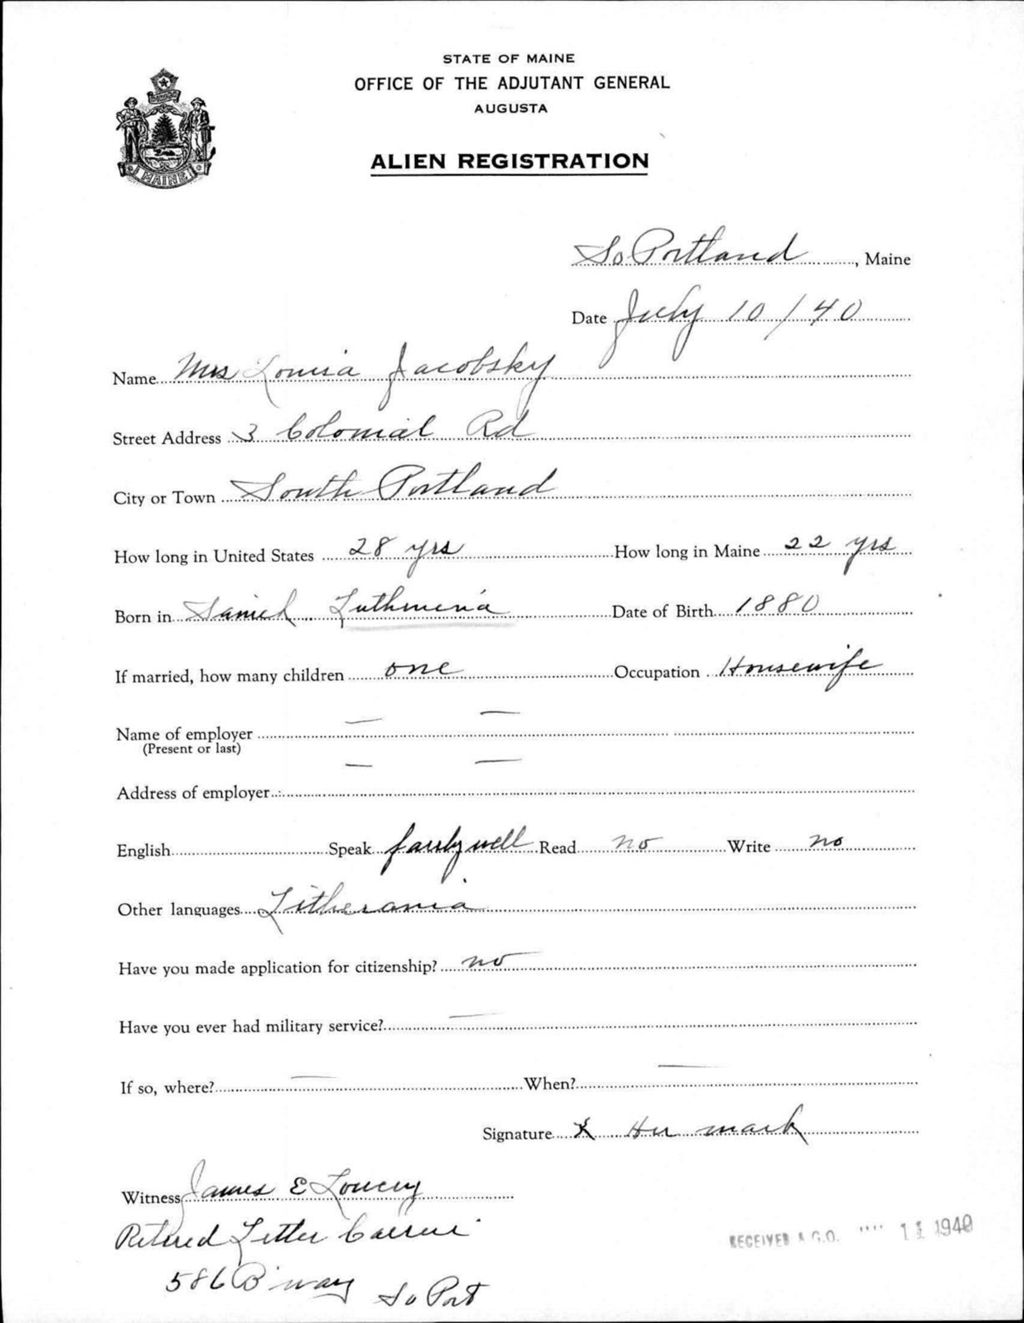 STATE OF MAINE
OFFICE OF THE ADJUTANT GENERAL
AUGUSTA
ALIEN REGISTRATION
MAINE
So Portland, Maine
Date July 10/40
Name Mrs Louisa Jacobsky
Street Address 3 Colonial Rd
City or Town South Portland
How long in United States 28 yrs How long in Maine 22 yrs
Born in Date of Birth 1880
If married, how many children one Occupation Housewife
Name of employer — —
(Present or last)
Address of employer — —
English Speak fairly well Read no Write no
Other languages Litherania
Have you made application for citizenship? no
Have you ever had military service? —
If so, where? — When? —
Signature X Her mark
Witness James E
Retired Letter Carrier
586 B'way So Port
RECEIVED A.G.O. 11 1940